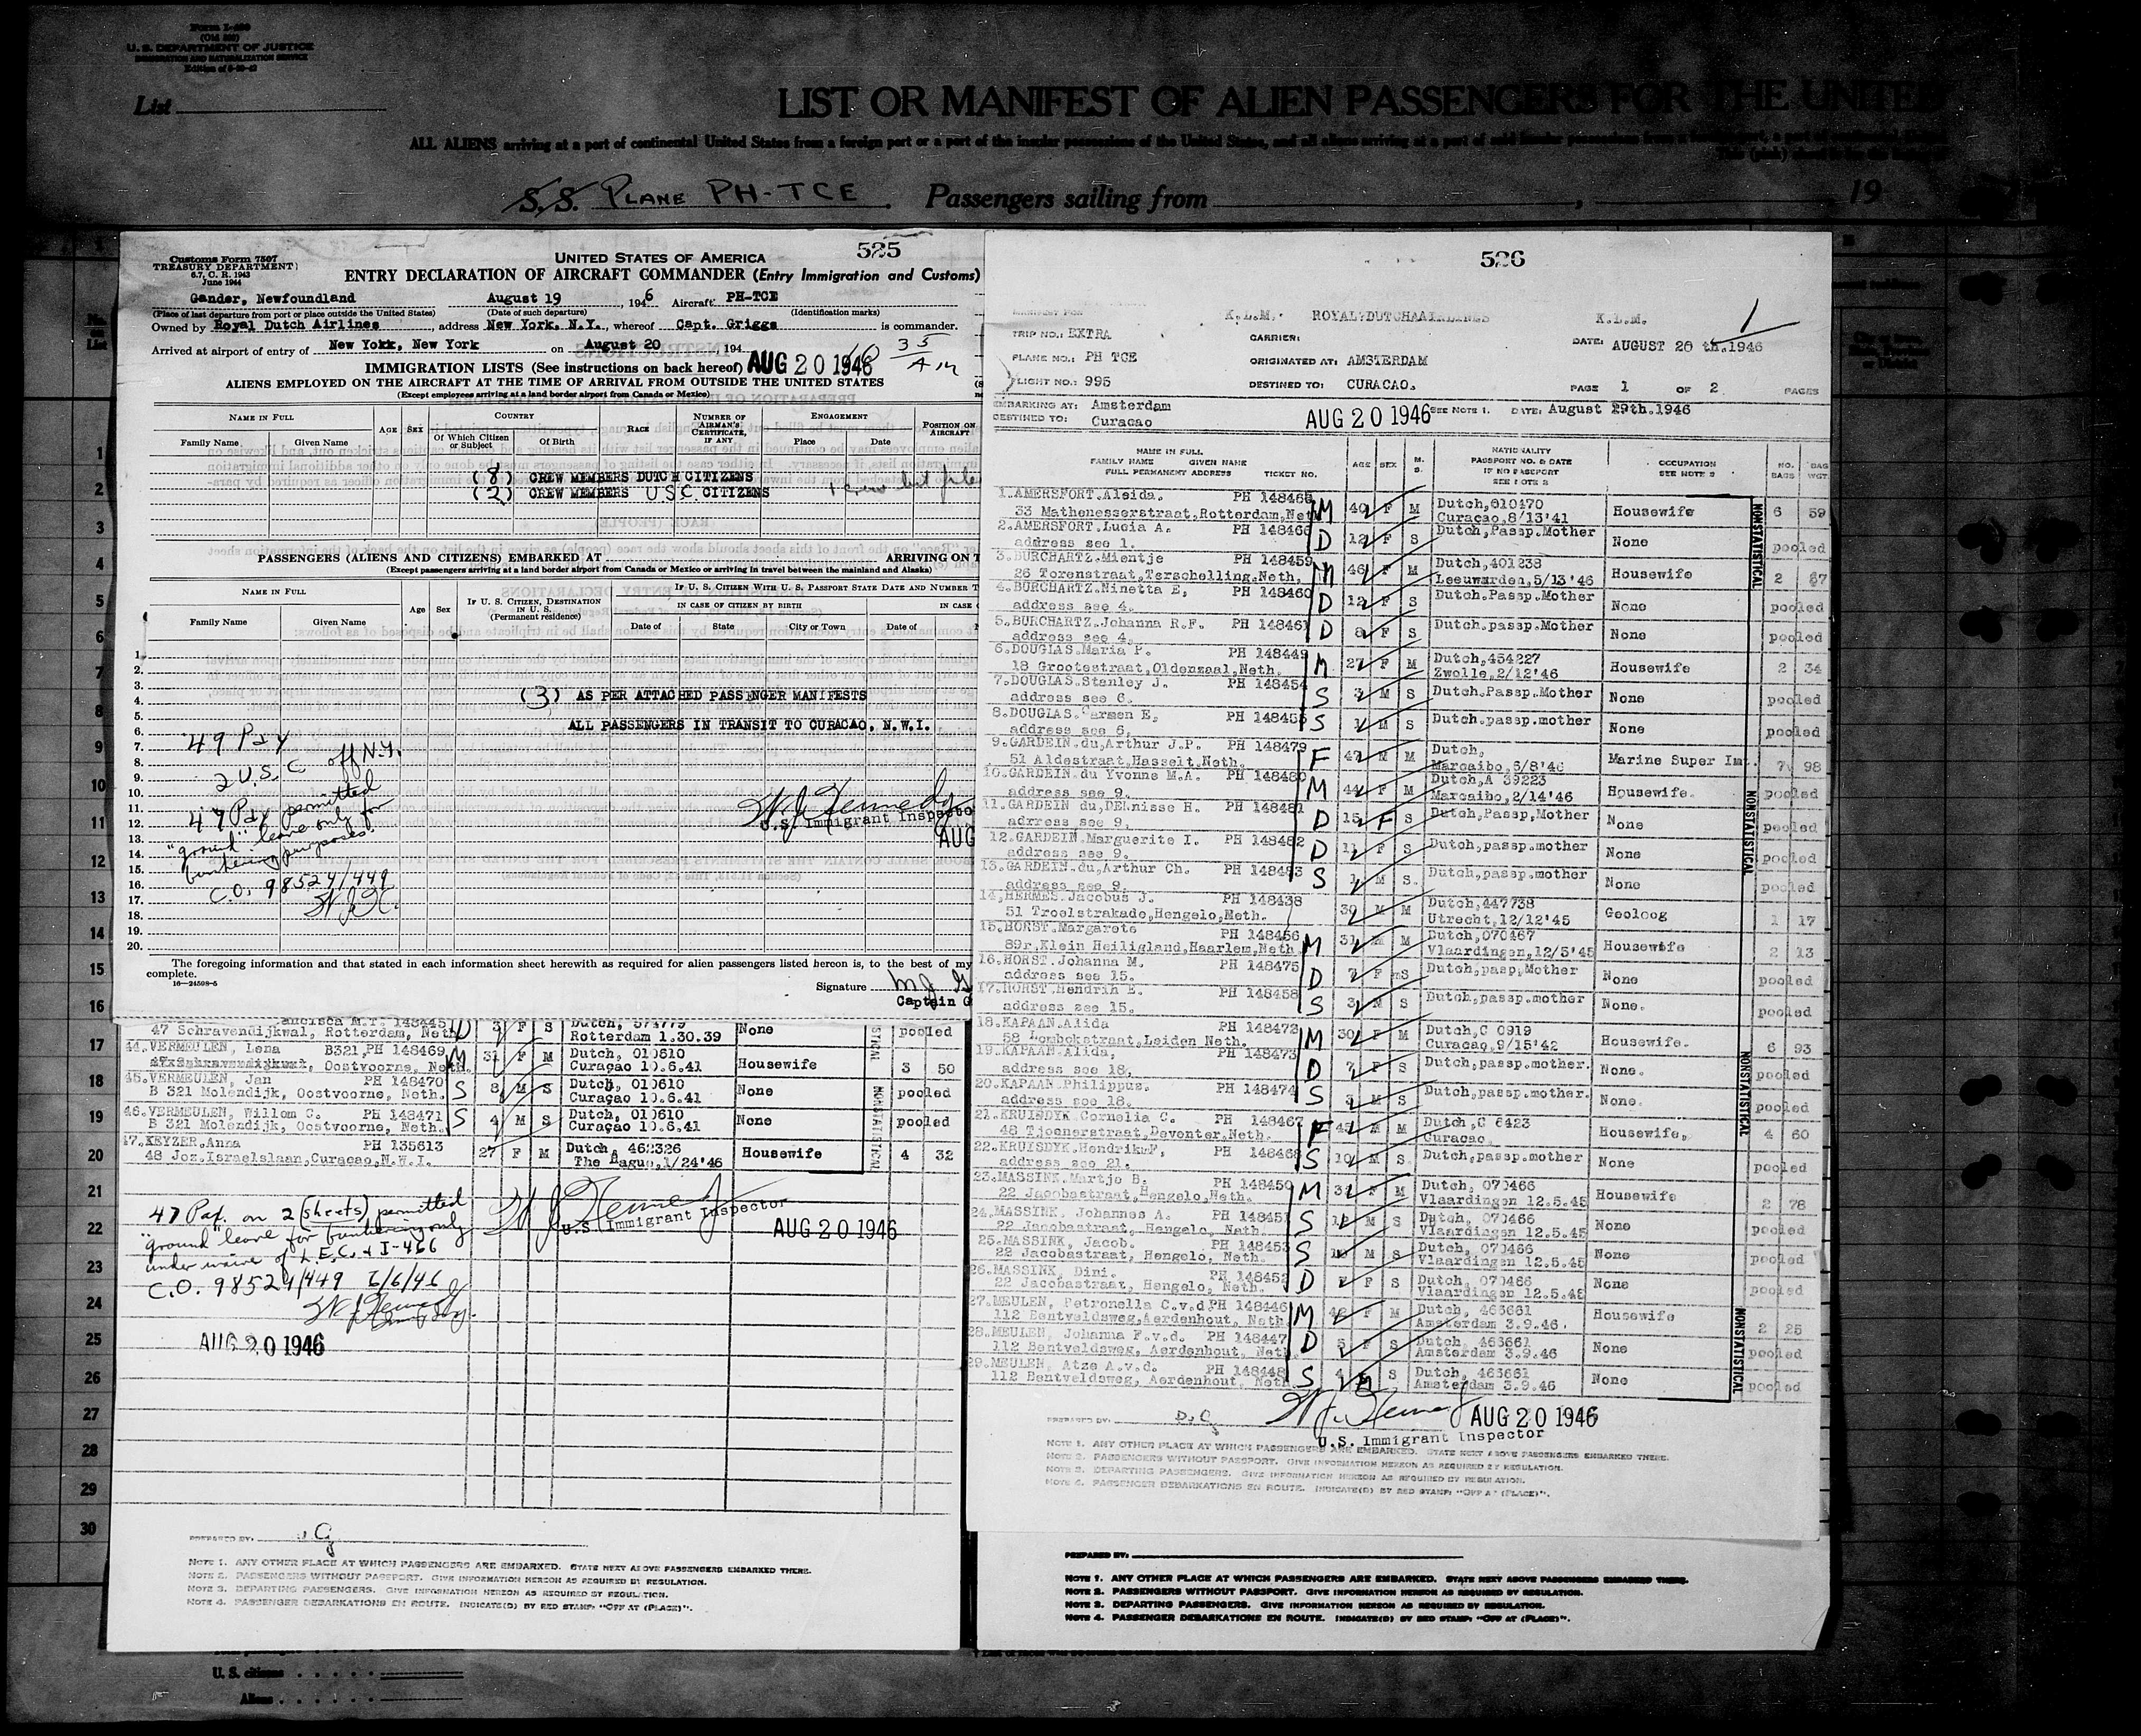 Form I-400
(Old 500)
U. S. DEPARTMENT OF JUSTICE
IMMIGRATION AND NATURALIZATION SERVICE
List
LIST OR MANIFEST OF ALIEN PASSENGERS FOR THE UNITED
ALL ALIENS arriving at a port of continental United States from a foreign port or a port of the insular possessions of the United States, and all aliens arriving at a port of said insular possessions from a foreign port, a port of continental
S.S. PLANE PH-TCE Passengers sailing from , 19
525
Customs Form 7507
TREASURY DEPARTMENT
6.7, C. R. 1943
June 1944
UNITED STATES OF AMERICA
ENTRY DECLARATION OF AIRCRAFT COMMANDER (Entry Immigration and Customs)
Gander, Newfoundland August 19, 1946 Aircraft PH-TCE
(Place of last departure from port or place outside the United States) (Date of such departure) (Identification marks)
Owned by Royal Dutch Airlines, address New York, N.Y., whereof Capt. Griggs is commander.
Arrived at airport of entry of New York, New York on August 20 194
AUG 20 1946
35
AM
IMMIGRATION LISTS (See instructions on back hereof)
ALIENS EMPLOYED ON THE AIRCRAFT AT THE TIME OF ARRIVAL FROM OUTSIDE THE UNITED STATES
(Except employees arriving at a land border airport from Canada or Mexico)
NAME IN FULL AGE SEX COUNTRY RACE NUMBER OF AIRMAN'S CERTIFICATE, IF ANY ENGAGEMENT POSITION ON AIRCRAFT
Family Name Given Name Of Which Citizen or Subject Of Birth Place Date
(8) CREW MEMBERS DUTCH CITIZENS
(2) CREW MEMBERS U S C CITIZENS
PASSENGERS (ALIENS AND CITIZENS) EMBARKED AT ARRIVING ON T
(Except passengers arriving at a land border airport from Canada or Mexico or arriving in travel between the mainland and Alaska)
NAME IN FULL Age Sex IF U. S. CITIZEN, DESTINATION IN U. S. (Permanent residence) IF U. S. CITIZEN WITH U. S. PASSPORT STATE DATE AND NUMBER T
IN CASE OF CITIZEN BY BIRTH IN CASE
Family Name Given Name Date of State City or Town Date of
(3) AS PER ATTACHED PASSENGER MANIFESTS
ALL PASSENGERS IN TRANSIT TO CURACAO, N.W.I.
49 Pax
2 U.S.C. off N.Y.
47 Pax permitted
"ground" leave only for
bunkering purposes.
C.O. 98524/449
W.J.K.
W J Kennedy
U.S. Immigrant Inspecto
AUG
The foregoing information and that stated in each information sheet herewith as required for alien passengers listed hereon is, to the best of my
complete.
16—24598-5
Signature
Captain G
ancisca M.T. 148445 D 3 F S Dutch, 574779 None pooled
47 Schravendijkwal, Rotterdam, Neth. Rotterdam 1.30.39
44.VERMEULEN, Lena B321,PH 148469 M 31 F M Dutch, 010610 Housewife 3 50
Oostvoorne, Neth. Curaçao 10.6.41
45.VERMEULEN, Jan PH 148470 S 8 M S Dutch, 010610 None pooled
B 321 Molendijk, Oostvoorne, Neth. Curaçao 10.6.41
46.VERMEULEN, Willem C. PH 148471 S 4 M S Dutch, 010610 None pooled
B 321 Molendijk, Oostvoorne, Neth. Curaçao 10.6.41
47.KEYZER,Anna PH 135613 27 F M Dutch, 462326 Housewife 4 32
48 Joz.Israelslaan,Curaçao,N.W.I. The Hague,1/24'46
NONSTATISTICAL
47 Pax. on 2 (sheets) permitted
"ground" leave for bunkering only
under waive of L.E.C. & I-466
C.O. 98524/449 6/6/46
W J Kennedy
U.S. Immigrant Inspector
AUG 20 1946
AUG 20 1946
PREPARED BY:
NOTE 1. ANY OTHER PLACE AT WHICH PASSENGERS ARE EMBARKED. STATE NEXT ABOVE PASSENGERS EMBARKED THERE.
NOTE 2. PASSENGERS WITHOUT PASSPORT. GIVE INFORMATION HEREON AS REQUIRED BY REGULATION.
NOTE 3. DEPARTING PASSENGERS. GIVE INFORMATION HEREON AS REQUIRED BY REGULATION.
NOTE 4. PASSENGER DEBARKATIONS EN ROUTE. INDICATE(D) BY RED STAMP: "OFF AT (PLACE)".
U. S. citizens
Aliens
526
MANIFEST FOR K.L.M. ROYAL DUTCH AIRLINES K.L.M.
TRIP NO.: EXTRA CARRIER: DATE: AUGUST 20 th.1946
PLANE NO.: PH TCE ORIGINATED AT: AMSTERDAM
FLIGHT NO.: 995 DESTINED TO: CURACAO. PAGE 1 OF 2 PAGES
EMBARKING AT: Amsterdam SEE NOTE 1. DATE: August 19th.1946
DESTINED TO: Curacao
AUG 20 1946
NAME IN FULL AGE SEX M. S. NATIONALITY OCCUPATION NO. BAGS BAG WGT.
FAMILY NAME GIVEN NAME PASSPORT NO. & DATE SEE NOTE 3
FULL PERMANENT ADDRESS TICKET NO. IF NO PASSPORT SEE NOTE 2
1.AMERSFORT.Aleida. PH 148465 M 40 F M Dutch,010470 Housewife 6 59
33 Mathenesserstraat,Rotterdam,Neth Curaçao,8/13'41
2.AMERSFORT.Lucia A. PH 148466 D 12 F S Dutch,Passp.Mother None pooled
address see 1.
3.BURCHARTZ.Mientje PH 148459 M 46 F M Dutch,401238 Housewife 2 67
26 Torenstraat,Terschelling.Neth. Leeuwarden,5/13'46
4.BURCHARTZ.Ninetta E, PH 148460 D 12 F S Dutch.Passp.Mother None pooled
address see 4.
5.BURCHARTZ.Johanna R.F. PH 148461 D 8 F S Dutch.passp.Mother None pooled
address see 4.
6.DOUGLAS.Maria P. PH 148449 M 27 F M Dutch,454227 Housewife 2 34
18 Grootestraat,Oldenzaal,Neth. Zwolle,2/12'46
7.DOUGLAS.Stanley J. PH 148454 S 3 M S Dutch.Passp.Mother None pooled
address see 6.
8.DOUGLAS.Carmen E, PH 148455 S 1 M S Dutch.passp.mother None pooled
address see 6,
9.GARDEIN.du,Arthur J.P. PH 148479 F 47 M M Dutch, Marine Super Int. 7 98
51 Aldestraat,Hasselt,Neth. Marcaibo,5/8'46
10.GARDEIN.du Yvonne M.A. PH 148480 M 44 F M Dutch,A 39223 Housewife. pooled
address see 9. Marcaibo,2/14'46
11.GARDEIN du,Denisse H. PH 148481 D 15 F S Dutch,Passp.Mother None pooled
address see 9,
12.GARDEIN.Marguerite I. PH 148482 D 11 F S Dutch,passp.mother None pooled
address see 9.
13.GARDEIN.du,Arthur Ch. PH 148483 S 1 M S. Dutch,passp.mother None pooled
address see 9.
14,HERMES.Jacobus J. PH 148438 30 M M Dutch,447738 Geoloog 1 17
51 Troelstrakade,Hengelo,Neth. Utrecht,12/12'45
15.HORST.Margarete PH 148456 M 31 M M Dutch,070467 Housewife 2 13
89r,Klein Heiligland,Haarlem,Neth Vlaardingen,12/5'45
16.HORST.Johanna M. PH 148475 D 7 F S Dutch,passp,Mother None pooled
address see 15.
17.HORST.Hendrik E. PH 148458 S 3 M S Dutch,passp.mother None. pooled
address see 15.
18.KAPAAN.Alida PH 148472 M 30 F M Dutch,C 0919 Housewife. 6 93
58 Lombokstraat,Leiden Neth. Curaçao,9/15'42
19.KAPAAN.Alida, PH 148473 D 7 F S Dutch,passp.mother. None. pooled
address see 18.
20.KAPAAN.Philippus. PH 148474 S 3 M S Dutch,passp.mother. None. pooled
address see 18.
21.KRUISDYK.Cornelia C. PH 148467 F M M Dutch,C 6423 Housewife, 4 60
48 Tjoenerstraat,Deventer,Neth. Curaçao
22.KRUISDYK.Hendrik F, PH 148468 S 10 M S. Dutch,passp.mother None pooled
address see 21.
23.MASSINK.Martje B. PH 148450 M 3 F M Dutch, 070466 Housewife 2 78
22 Jacobastraat,Hengelo,Neth. Vlaardingen 12.5.45
24.MASSINK, Johannes A. PH 148451 S M S Dutch, 070466 None pooled
22 Jacobastraat, Hengelo, Neth. Vlaardingen 12.5.45
25.MASSINK, Jacob. PH 148453 S 10 M S Dutch, 070466 None pooled
22 Jacobastraat, Hengelo, Neth. Vlaardingen 12.5.45
26.MASSINK, Dini. PH 148452 D F S Dutch, 070466 None pooled
22 Jacobastraat, Hengelo, Neth. Vlaardingen 12.5.45
27.MEULEN, Petronella C.v.d. PH 148446 M 42 F M Dutch, 463661 Housewife 2 25
112 Bentveldsweg,Aerdenhout, Neth. Amsterdam 3.9.46.
28.MEULEN, Johanna F.v.d. PH 148447 D 5 F S Dutch, 463661 None pooled
112 Bentveldsweg, Aerdenhout, Neth. Amsterdam 3.9.46
29.MEULEN, Atze A.v.d. PH 148448 S 4 M S Dutch, 463661 None pooled
112 Bentveldsweg, Aerdenhout, Neth. Amsterdam 3.9.46
NONSTATISTICAL
NONSTATISTICAL
NONSTATISTICAL
NONSTATISTICAL
PREPARED BY: D.G.
W J Kennedy
AUG 20 1946
U.S. Immigrant Inspector
NOTE 1. ANY OTHER PLACE AT WHICH PASSENGERS ARE EMBARKED. STATE NEXT ABOVE PASSENGERS EMBARKED THERE.
NOTE 2. PASSENGERS WITHOUT PASSPORT. GIVE INFORMATION HEREON AS REQUIRED BY REGULATION.
NOTE 3. DEPARTING PASSENGERS. GIVE INFORMATION HEREON AS REQUIRED BY REGULATION.
NOTE 4. PASSENGER DEBARKATIONS EN ROUTE. INDICATE(D) BY RED STAMP: "OFF AT (PLACE)".
PREPARED BY:
NOTE 1. ANY OTHER PLACE AT WHICH PASSENGERS ARE EMBARKED. STATE NEXT ABOVE PASSENGERS EMBARKED THERE.
NOTE 2. PASSENGERS WITHOUT PASSPORT. GIVE INFORMATION HEREON AS REQUIRED BY REGULATION.
NOTE 3. DEPARTING PASSENGERS. GIVE INFORMATION HEREON AS REQUIRED BY REGULATION.
NOTE 4. PASSENGER DEBARKATIONS EN ROUTE. INDICATE(D) BY RED STAMP: "OFF AT (PLACE)".